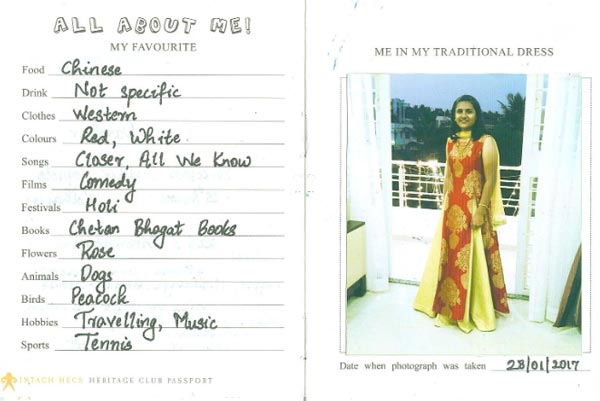 ALL ABOUT ME!
MY FAVOURITE
Food Chinese
Drink Not specific
Clothes Western
Colours Red, White
Songs Closer, All We Know
Films Comedy
Festivals Holi
Books Chetan Bhagat Books
Flowers Rose
Animals Dogs
Birds Peacock
Hobbies Travelling, Music
Sports Tennis
INTACH HECS HERITAGE CLUB PASSPORT
ME IN MY TRADITIONAL DRESS
Date when photograph was taken 28/01/2017